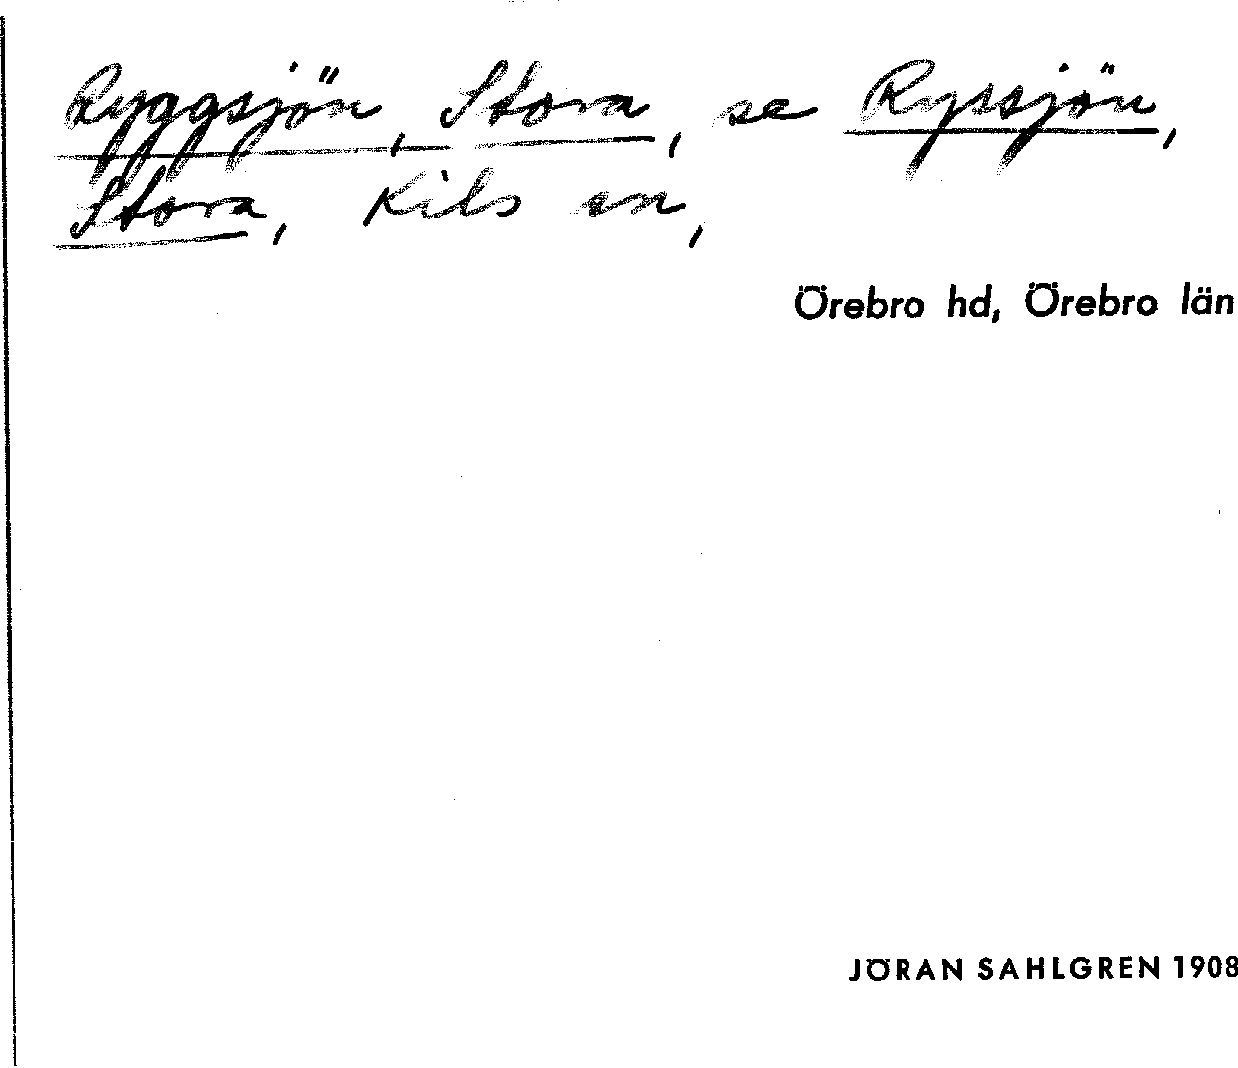 Ryggsjön, Stora, se Ryssjön,
Stora, Kils sn,
Örebro hd, Örebro län
JÖRAN SAHLGREN 1908